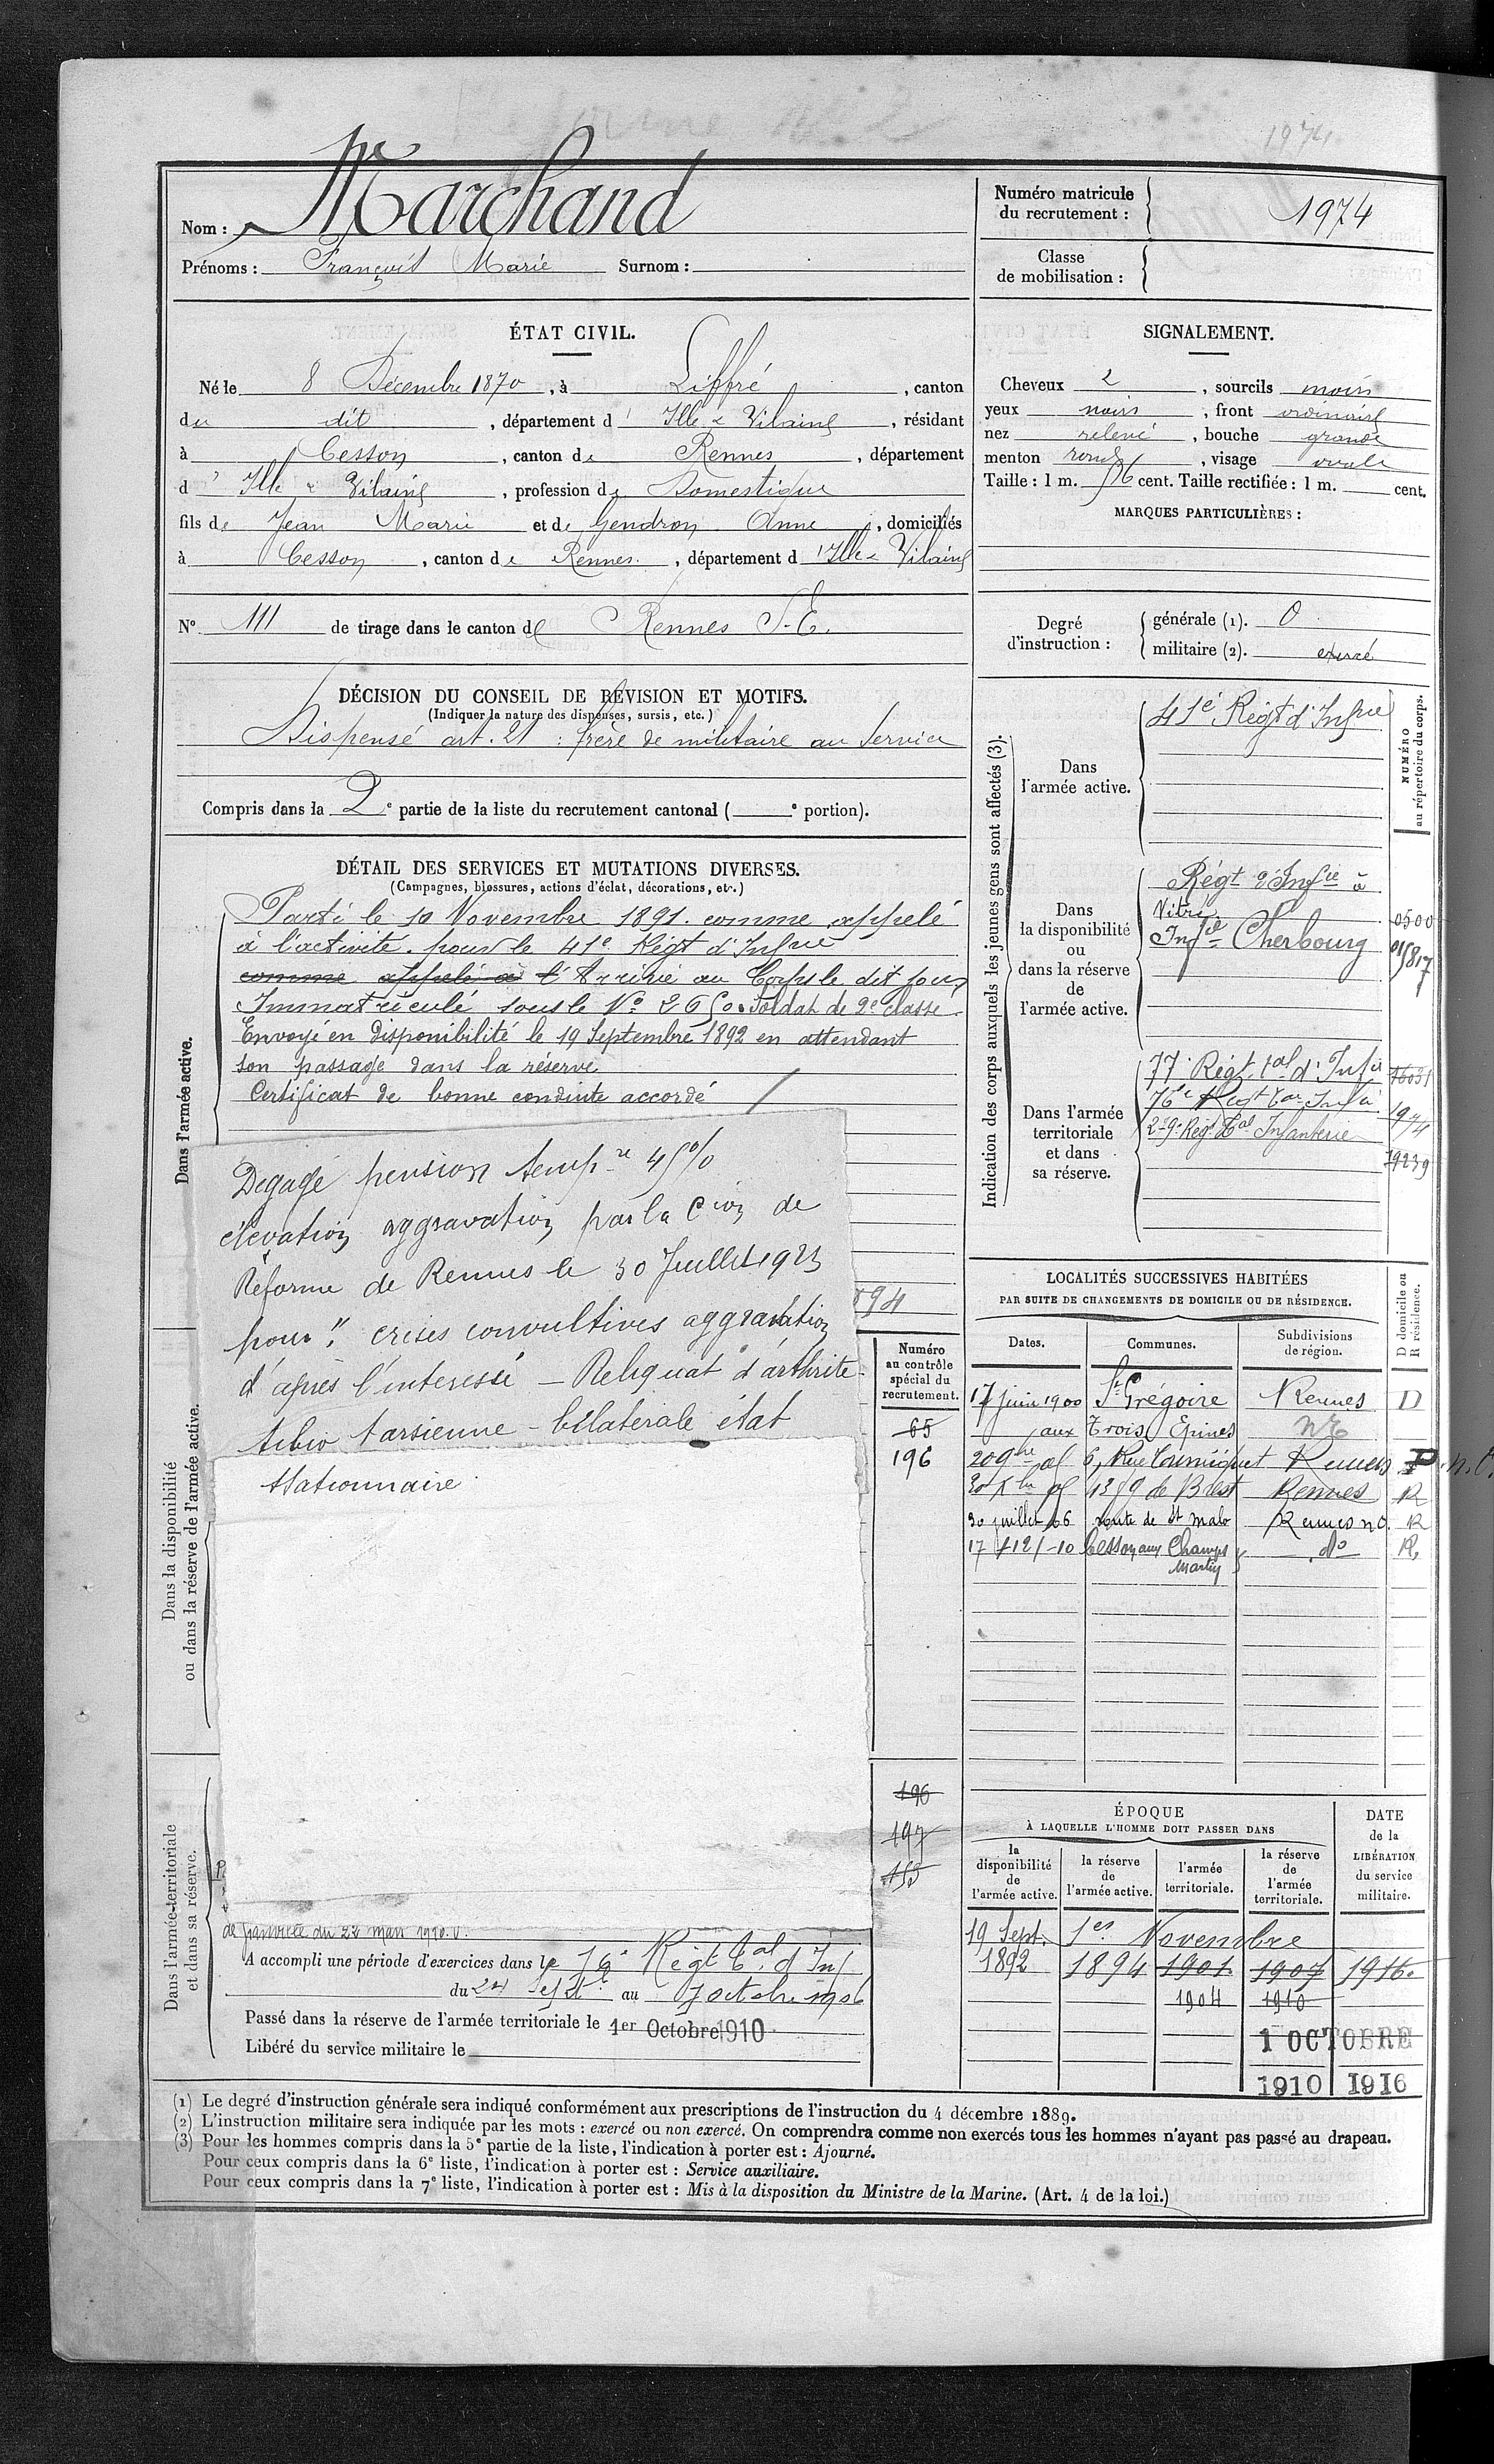 1974
Nom : Marchand
Prénoms : François Marie Surnom :
Numéro matricule du recrutement : 1974
Classe de mobilisation :
ÉTAT CIVIL.
Né le 8 Décembre 1870, à Liffré, canton
du dit, département d'Ille & Vilaine, résidant
à Cesson, canton de Rennes, département
d'Ille & Vilaine, profession de Domestique
fils de Jean Marie et de Gendron Anne, domiciliés
à Cesson, canton de Rennes, département d'Ille & Vilaine
N° 111 de tirage dans le canton de Rennes S-E.
SIGNALEMENT.
Cheveux 2, sourcils noirs
yeux noirs, front ordinaire
nez relevé, bouche grande
menton rond, visage ovale
Taille : 1 m. 56 cent. Taille rectifiée : 1 m. cent.
MARQUES PARTICULIÈRES :
Degré d'instruction :
générale (1). 0
militaire (2). exercé
DÉCISION DU CONSEIL DE RÉVISION ET MOTIFS.
(Indiquer la nature des dispenses, sursis, etc.)
Dispensé art. 21 : frère de militaire au Service
Compris dans la 2e partie de la liste du recrutement cantonal ( e portion).
DÉTAIL DES SERVICES ET MUTATIONS DIVERSES.
(Campagnes, blessures, actions d'éclat, décorations, etc.)
Dans l'armée active.
Parti le 10 Novembre 1891. comme appelé
à l'activité. pour le 41e Régt d'Infrie
comme appelé à l' Arrivé au Corps le dit jour
Immatriculé sous le N° 2650. Soldat de 2e classe.
Envoyé en disponibilité le 19 Septembre 1892 en attendant
son passage dans la réserve
Certificat de bonne conduite accordé
Dégagé pension tempre 45%
élévation aggravation par la Cion de
Réforme de Rennes le 30 Juillet 1923
pour " crises convultives aggravation
d'après l'interessé – Reliquat d'arthrite
tibio tarsienne – bilatérale état
stationnaire
894
Dans la disponibilité ou dans la réserve de l'armée active.
Numéro au contrôle spécial du recrutement.
65
196
196
197
155
Dans l'armée territoriale et dans sa réserve.
de du 22 mars 1910.
A accompli une période d'exercices dans le 76e Régt tal d'Inf
du 24 Septbre au 7 octobre 1906
Passé dans la réserve de l'armée territoriale le 1er Octobre 1910
Libéré du service militaire le
Indication des corps auxquels les jeunes gens sont affectés (3).
NUMÉRO au répertoire du corps.
Dans l'armée active.
41e Régt d'Infrie
Dans la disponibilité ou dans la réserve de l'armée active.
Régt d'Infie à
Vitré 0500
Infie Cherbourg 015817
Dans l'armée territoriale et dans sa réserve.
77 Régt tal d'Infie 16031
76e Regt tal Infie 1974
Régt tal Infanterie 19239
LOCALITÉS SUCCESSIVES HABITÉES
PAR SUITE DE CHANGEMENTS DE DOMICILE OU DE RÉSIDENCE.
D domicile ou R résidence.
Dates. Communes. Subdivisions de région.
17 juin 1900 St Grégoire Rennes D
aux Trois Epines NE
6, Rue Rennes
de Brest Rennes R
30 juillet 06 route de St Malo Rennes n.o. R
Cesson aux Champs do R
Martin
ÉPOQUE
À LAQUELLE L'HOMME DOIT PASSER DANS
DATE de la LIBÉRATION du service militaire.
la disponibilité de l'armée active. la réserve de l'armée active. l'armée territoriale. la réserve de l'armée territoriale.
19 Sept. 1er Novembre
1892 1894 1901 1907 1916.
1904 1910
1 OCTOBRE
1910 1916
(1) Le degré d'instruction générale sera indiqué conformément aux prescriptions de l'instruction du 4 décembre 1889.
(2) L'instruction militaire sera indiquée par les mots : exercé ou non exercé. On comprendra comme non exercés tous les hommes n'ayant pas passé au drapeau.
(3) Pour les hommes compris dans la 5e partie de la liste, l'indication à porter est : Ajourné.
Pour ceux compris dans la 6e liste, l'indication à porter est : Service auxiliaire.
Pour ceux compris dans la 7e liste, l'indication à porter est : Mis à la disposition du Ministre de la Marine. (Art. 4 de la loi.)